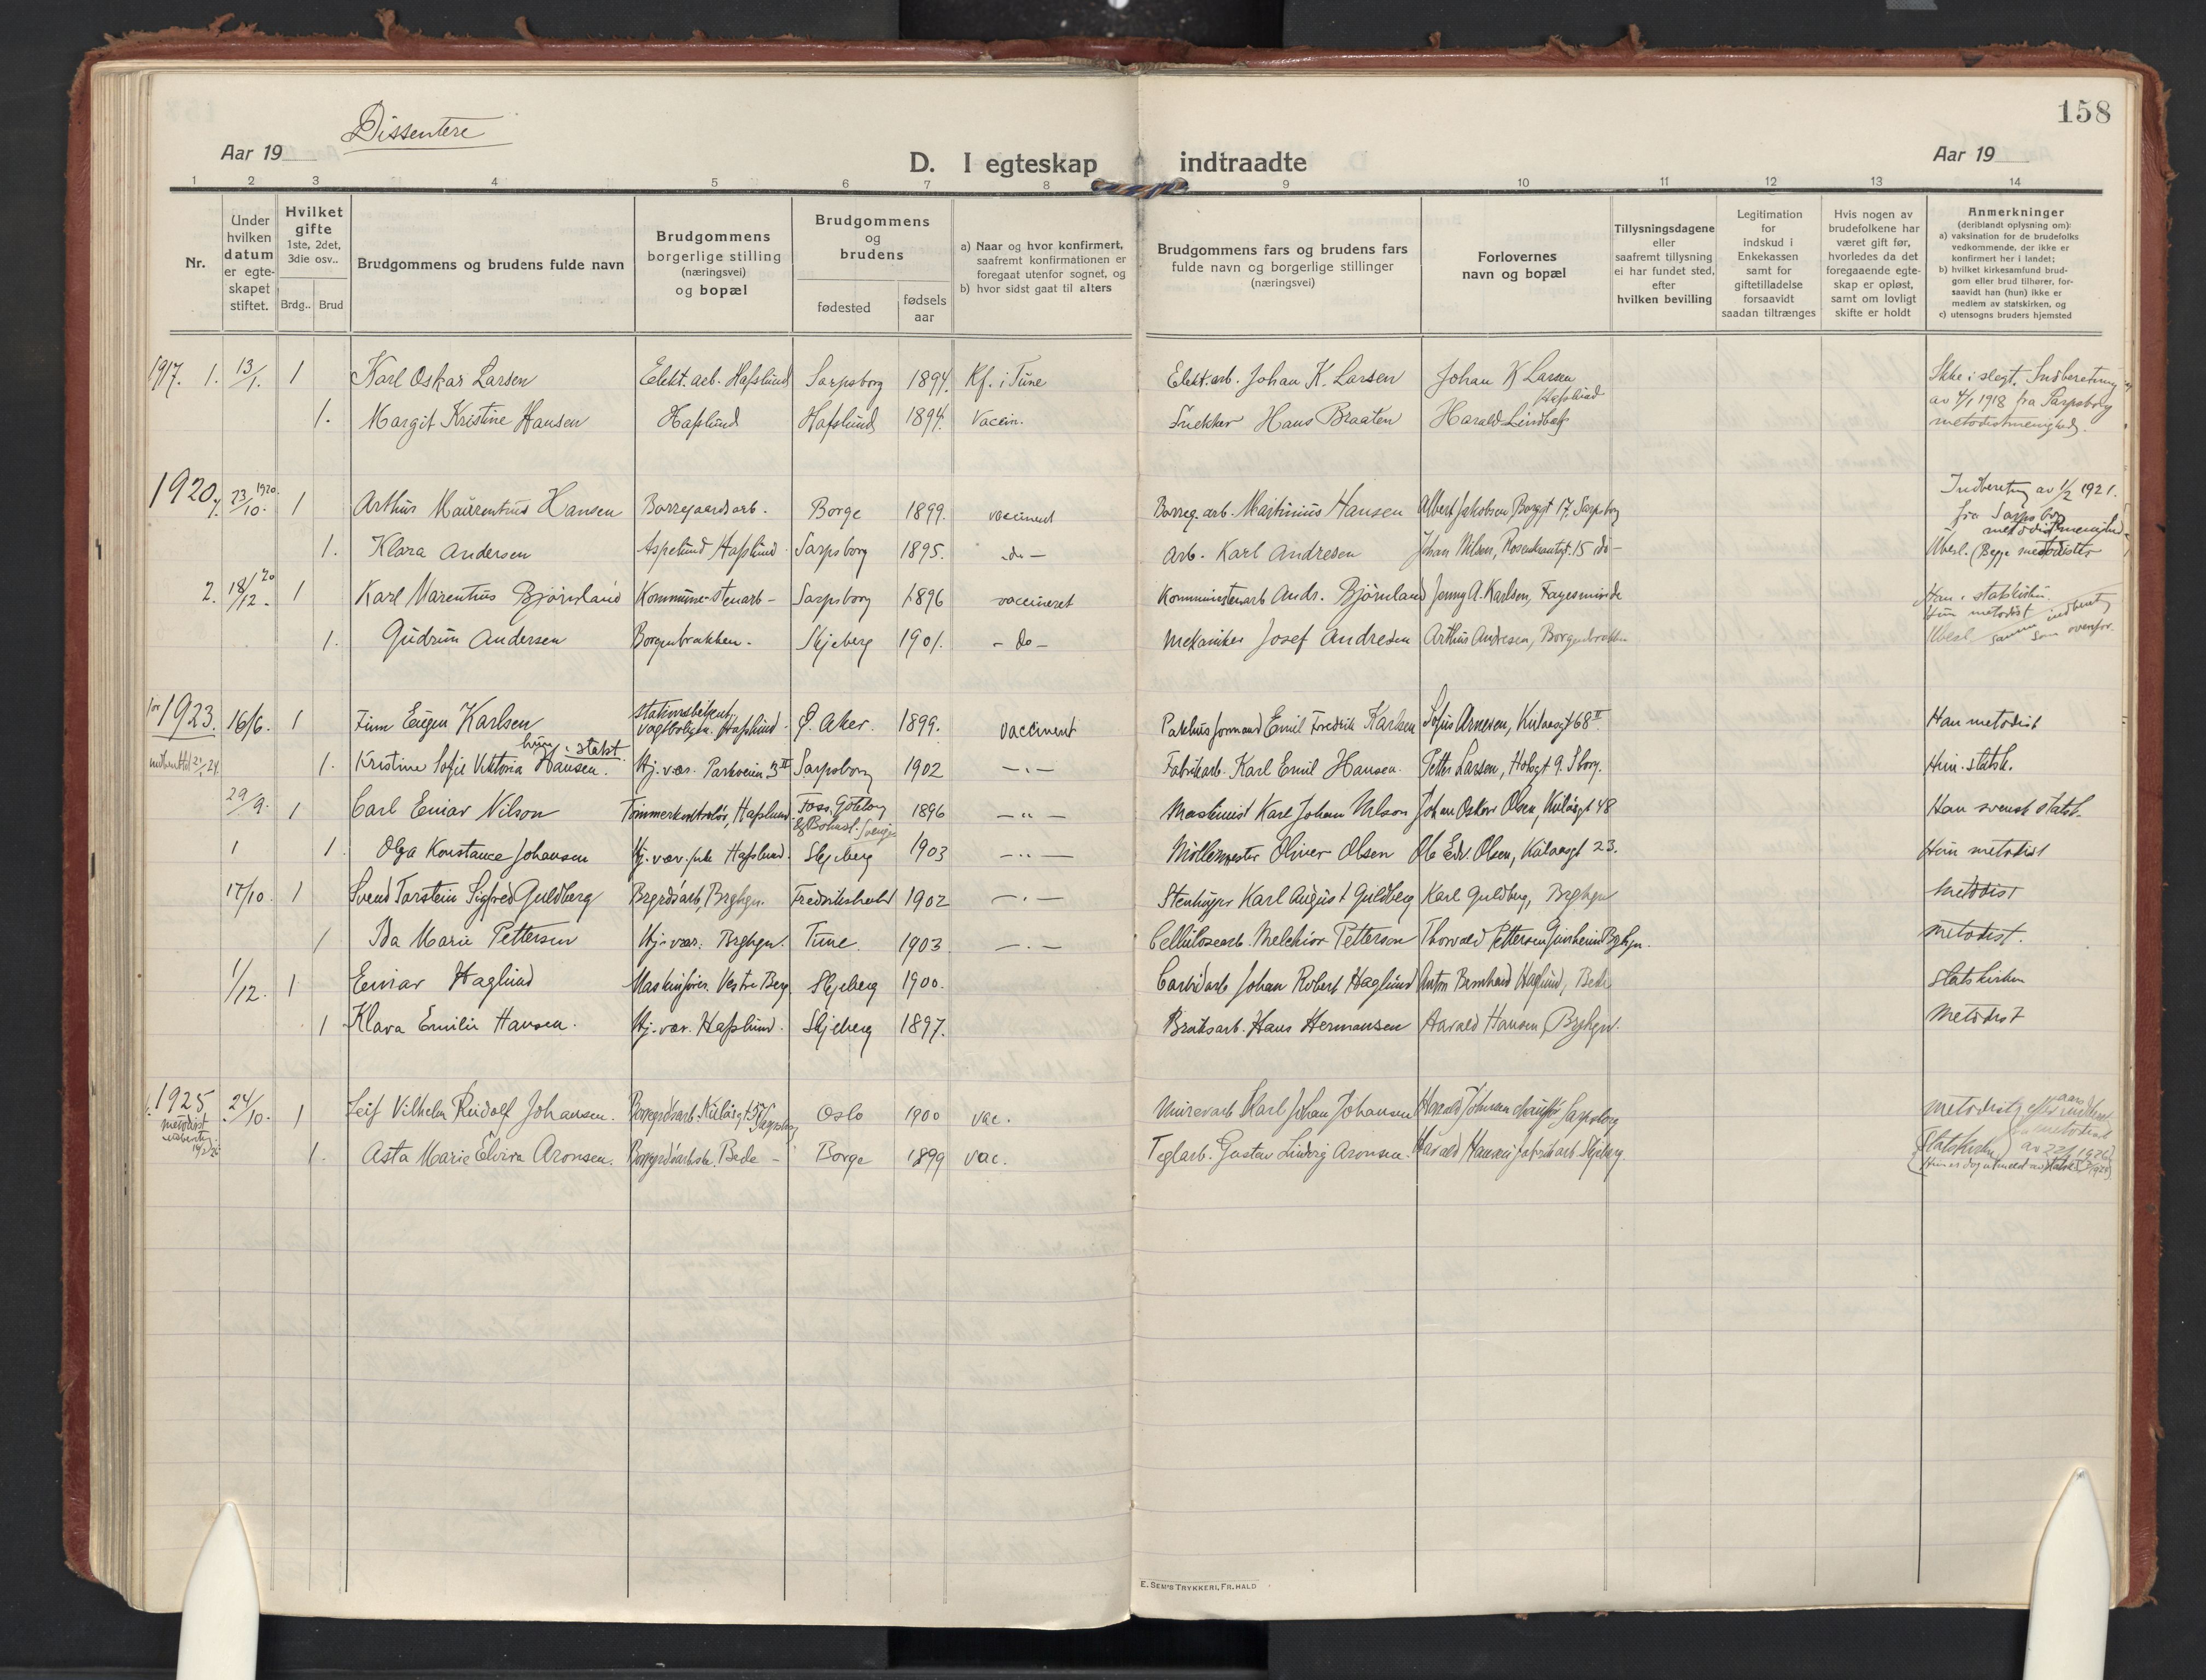 Dissentere
158
Aar 19
D. I egteskap indtraadte
Aar 19
1 2 3 4 5 6 7 8 9 10 11 12 13 14
Nr.
Under hvilken datum er egte-skapet stiftet.
Hvilket gifte
1ste, 2det, 3die osv..
Brdg.. Brud
Brudgommens og brudens fulde navn
Brudgommens borgerlige stilling (næringsvei) og bopæl
Brudgommens og brudens
fødested
fødsels aar
a) Naar og hvor konfirmert, saafremt konfirmationen er foregaat utenfor sognet, og
b) hvor sidst gaat til alters
Brudgommens fars og brudens fars fulde navn og borgerlige stillinger (næringsvei)
Forlovernes navn og bopæl
Tillysningsdagene eller saafremt tillysning ei har fundet sted, efter hvilken bevilling
Legitimation for indskud i Enkekassen samt for giftetilladelse forsaavidt saadan tiltrænges
Hvis nogen av brudefolkene har været gift før, hvorledes da det foregaaende egte-skap er opløst, samt om lovligt skifte er holdt
Anmerkninger
(deriblandt oplysning om):
a) vaksination for de brudefolks vedkommende, der ikke er konfirmert her i landet;
b) hvilket kirkesamfund brud-gom eller brud tilhører, for-saavidt han (hun) ikke er medlem av statskirken, og
c) utensogns bruders hjemsted
1917. 1. 13/1. 1 Karl Oskar Larsen Elekt. arb. Hafslund Sarpsborg 1894. Kf. i Tune Elekt. arb. Johan K. Larsen Johan K Larsen Hafslund Ikke i slegt. Indberetning av 4/1 1918 fra Sarpsborg metodistmenighed.
1. Margit Kristine Hansen Hafslund Hafslund 1894. Vaccin. Snekker Hans Braaten Harald
1920. 1. 23/10. 1920. 1 Arthur Maurentius Hansen Borregaardsarb. Borge 1899. vaccinert Borreg. arb. Martinius Hansen Albert Jakobsen, 17. Sarpsborg Indberetng av 1/2 1921. fra Sarpsborg metodistmenighed
1. Klara Andersen Aspelund Hafslund. Sarpsborg 1895. -do- Arb. Karl Andresen Johan Nilsen, Rosenkrantzgt. 15 do- Ubesl. (Begge metodister
2. 18/12. 20 1 Karl Marentius Bjørnland Kommune-stenarb- Sarpsborg 1896 vaccineret Kommunestenarb Andr. Bjørnland Jenny A. Karlsen, Fagesminde Han i statskirken. Hun metodist
1. Gudrun Andersen Borgenbrakken. Skjeberg 1901. -do- Mekaniker Josef Andresen Arthur Andresen, Borgenbrakken Ubesl samme indberetng som ovenfor.
for 1923. 16/6. 1 Finn Eugen Karlsen stationsbetjent, Hafslund. Ø. Aker. 1899. vaccinert Pakhusformand Emil Fredrik Karlsen Sofus Arnesen, Kirkegt 68 II Han metodist
1. Kristine Sofie Viktoria Hansen. hun i statsk. Hj. vær. Parkveien 3 II Sarpsborg 1902 -"- Fabrikarb. Karl Emil Hansen. Petter Larsen, 9. Sborg. Hun. statsk.
29/9. 1 Carl Einar Nilson Tømmerkontrolør, Hafslund. Foss, Göteborg & Bohusl. Sverige 1896 -"- Maskinist Karl Johan Nilson Johan Oskar Olsen, Kulåsgt 48 Han svensk statsk.
1 Olga Konstance Johansen Hj. vær. Hafslund. Skjeberg 1903 -"- Møllemester Oliver Olsen Ole Edv. Olsen, Kulaasgt 23. Hun metodist
17/10. 1 Svend Torstein Sigfred Guldberg Brgrdsarb, Brghgn. Fredrikshald 1902 -"- Stenhugger Karl August Guldberg Karl Guldberg, Brghgn Metodist
1 Ida Marie Pettersen Hj. vær. Brghgn. Tune. 1903 -"- Cellulosearb. Melchior Petterson Thorvald Pettersen Brghgn. metodist.
1/12. 1 Einar Haglund Maskinfører. Vestre Berg. Skjeberg 1900. Carbidarb Johan Robert Haglund Anton Bernhard Haglund, Bede Statskirken
1 Klara Emilie Hansen. Hj. vær. Hafslund. Skjeberg 1897. Bruksarb. Hans Hermansen Harald Hansen, Brghgn. Metodist
1925 24/10. 1 Leif Vilhelm Rudolf Johansen. Borregrdsarb. Kulåsgt 37 Sarpsborg Oslo 1900 vac. Murerarb Karl Johan Johansen Harald Johnsen chauffør Sarpsborg metodist
1. Asta Marie Elvira Aronsen. Bede - Borge 1899 vac. Teglarb. Gustav Ludvig Aronsen. Harald Hansen fabrikarb. Skjeberg. Statskirken
E. SEM'S TRYKKERI, FR.HALD